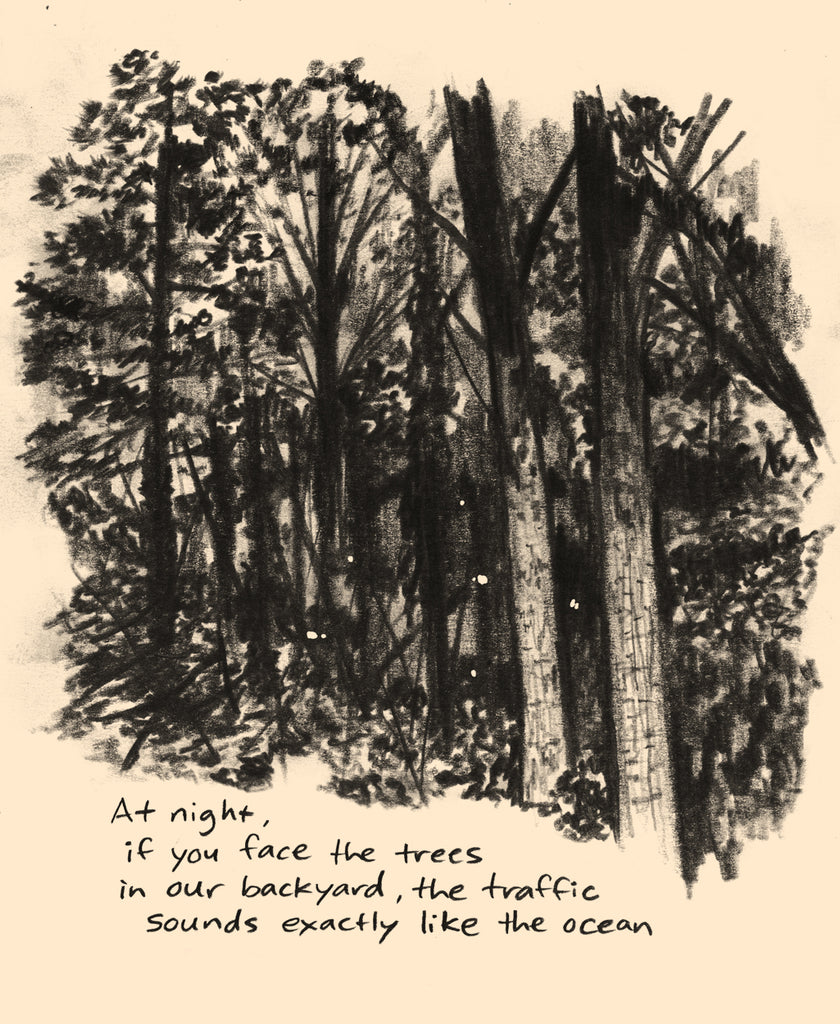 At night,
if you face the trees
in our backyard, the traffic
sounds exactly like the ocean